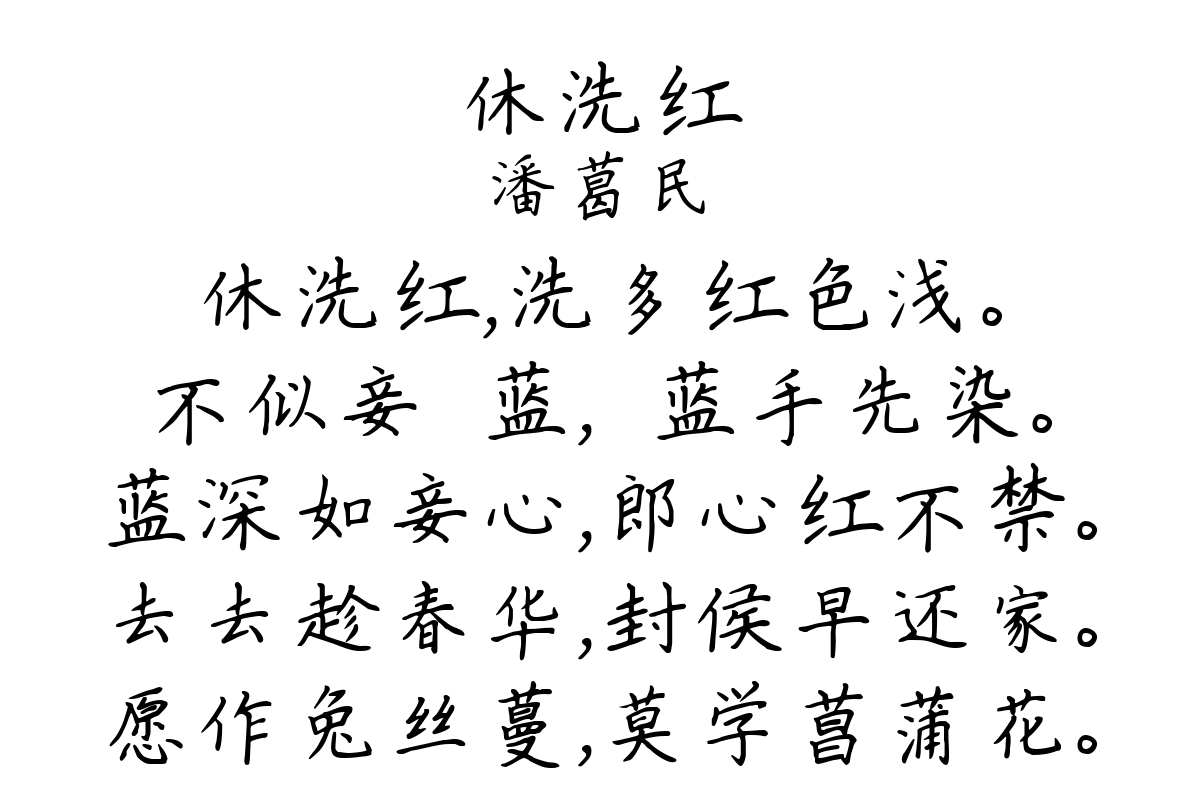 休洗红
潘葛民
休洗红,洗多红色浅。
不似妾 蓝, 蓝手先染。
蓝深如妾心,郎心红不禁。
去去趁春华,封侯早还家。
愿作兔丝蔓,莫学菖蒲花。